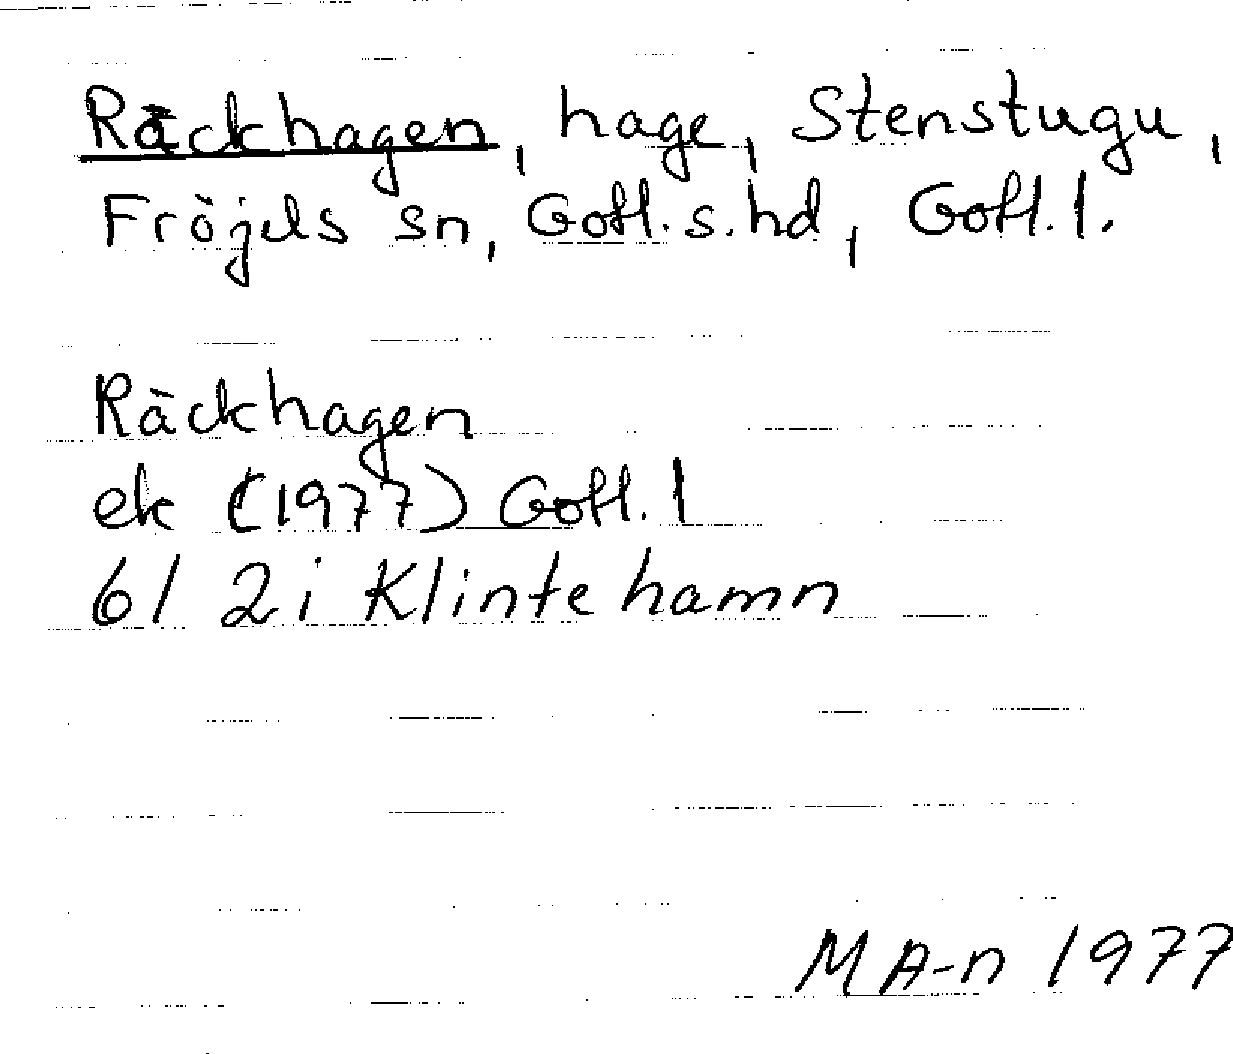 Räckhagen, hage, Stenstugu,
Fröjels sn, Gotl. s. hd, Gotl. l.
Räckhagen
ek (1977) Gotl. l
6I 2i Klintehamn
M A-n 1977